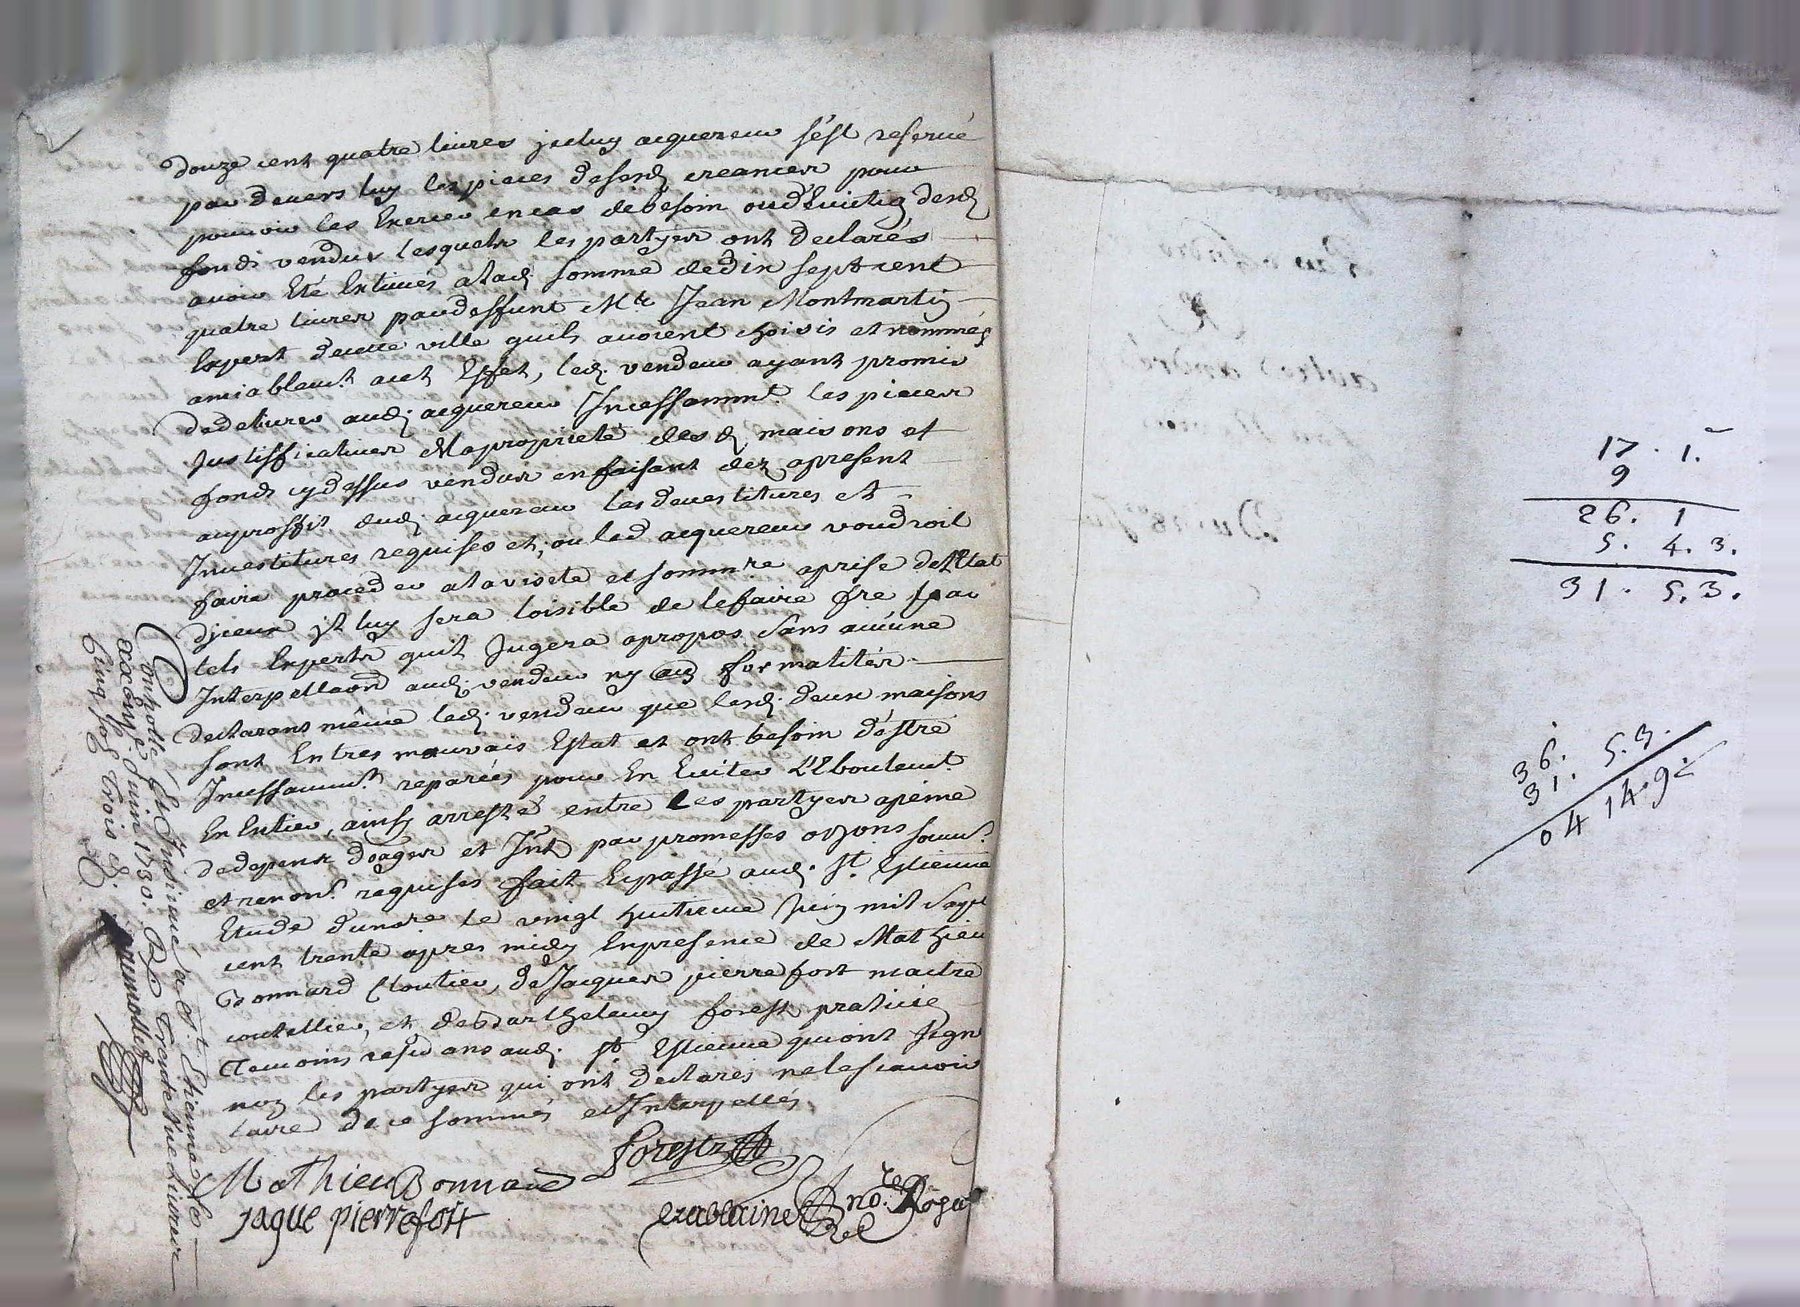 douze cent quatre livres jceluy acquereur s'est reservé
par devers luy les pieces desesd. creances pour
pouvoir les Exercer en cas de besoin ou d'Eviction desd.
fonds vendus lesquels les partyes ont declarés
avoir Eté Estimés a lad. somme de dix sept cent
quatre livres par deffunt Mre Jean Montmartin
Expert de cette ville quils avoient choisis et nommés
amiablemt. a cet Effet, led. vendeur ayant promis
de delivrer aud. acquereur Incessammt. les pieces
Justifficatives de la proprieté desd. maisons et
fonds cy dessus vendus en faisant dez apresent
au proffit dud. acquereur les devestitures et
Investitures requises et, ou led acquereur voudroit
faire proceder a la visite et sommre aprise de l'Etat
djceux jl luy sera loisible de le faire fre par
tels Experts quil Jugera apropos sans aucune
Interpellaon aud. vendeur ny aus formalités
declarant même led. vendeur que lesd. deux maisons
sont En tres mauvais Estat et ont besoin d'éstre
Incessammt. reparées pour En Eviter L'Eboulemt.
En Entier, ainsy arresté entre Les partyes apeine
de depens doages et Int par promesses obons soumis.
et renons. requises fait Et passé aud. St. Estienne
Etude dunore le vingt huitieme Juin mil sept
cent trente apres midy En presence de Mathieu
Bonnard Cloutier, de Jacques pierrefort maitre
coutellier, et de Barthelemy forest praticie
Temoins residans aud. St. Estienne qui ont signé
non les partyes qui ont declarés ne le scavoir
faire de ce sommés et Interpellés,
forest
Mathieu Bonnard
jaque pierrefort
no.re Royal
Controllé Et Insinué a St. Etienne le
xxx juin 1730. R. Trente une Livres
Cinq sols trois d.
17 . 1.
9
26 . 1
5 . 4 . 3 .
31 . 5 . 3 .
36 . 5 . 3 .
31 .
04 14 . 9 .